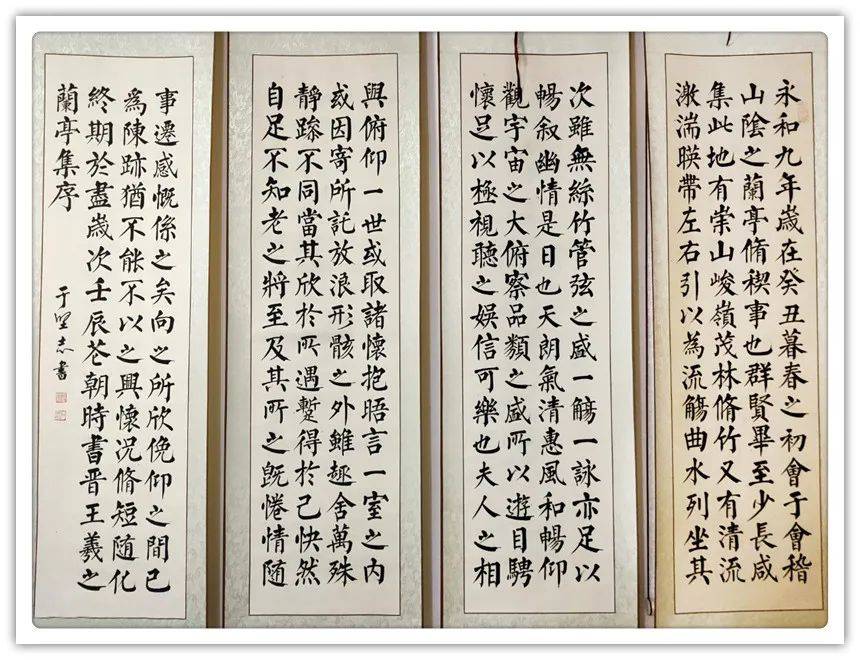 永和九年歲在癸丑暮春之初會于會稽
山陰之蘭亭脩稧事也群賢畢至少長咸
集此地有崇山峻嶺茂林脩竹又有清流
激湍暎帶左右引以為流觴曲水列坐其
次雖無絲竹管弦之盛一觴一詠亦足以
暢叙幽情是日也天朗氣清惠風和暢仰
觀宇宙之大俯察品類之盛所以遊目騁
懷足以極視聽之娛信可樂也夫人之相
與俯仰一世或取諸懷抱晤言一室之內
或因寄所託放浪形骸之外雖趣舍萬殊
靜躁不同當其欣於所遇蹔得於己快然
自足不知老之將至及其所之既惓情隨
事遷感慨係之矣向之所欣俛仰之間已
為陳跡猶不能不以之興懷況脩短隨化
終期於盡歲次壬辰花朝時書晋王羲之
蘭亭集序
于堅志書